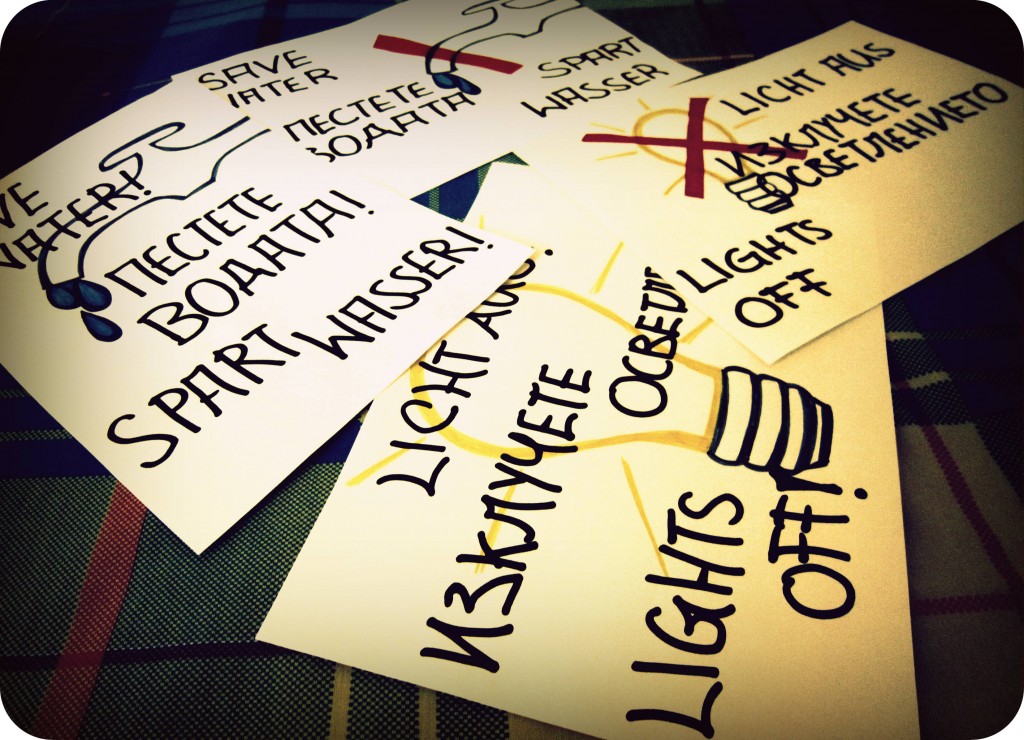 SAVE
WATER
ПЕСТЕТЕ
ВОДАТА
SPART
WASSER
LICHT AUS
ИЗКЛУЧЕТЕ
ОСВЕТЛЕНИЕТО
LIGHTS
OFF
VE
WATER!
ПЕСТЕТЕ
ВОДАТА!
SPART
WASSER!
LICHT AUS!
ИЗКЛУЧЕТЕ
ОСВЕТЛ
LIGHTS
OFF!